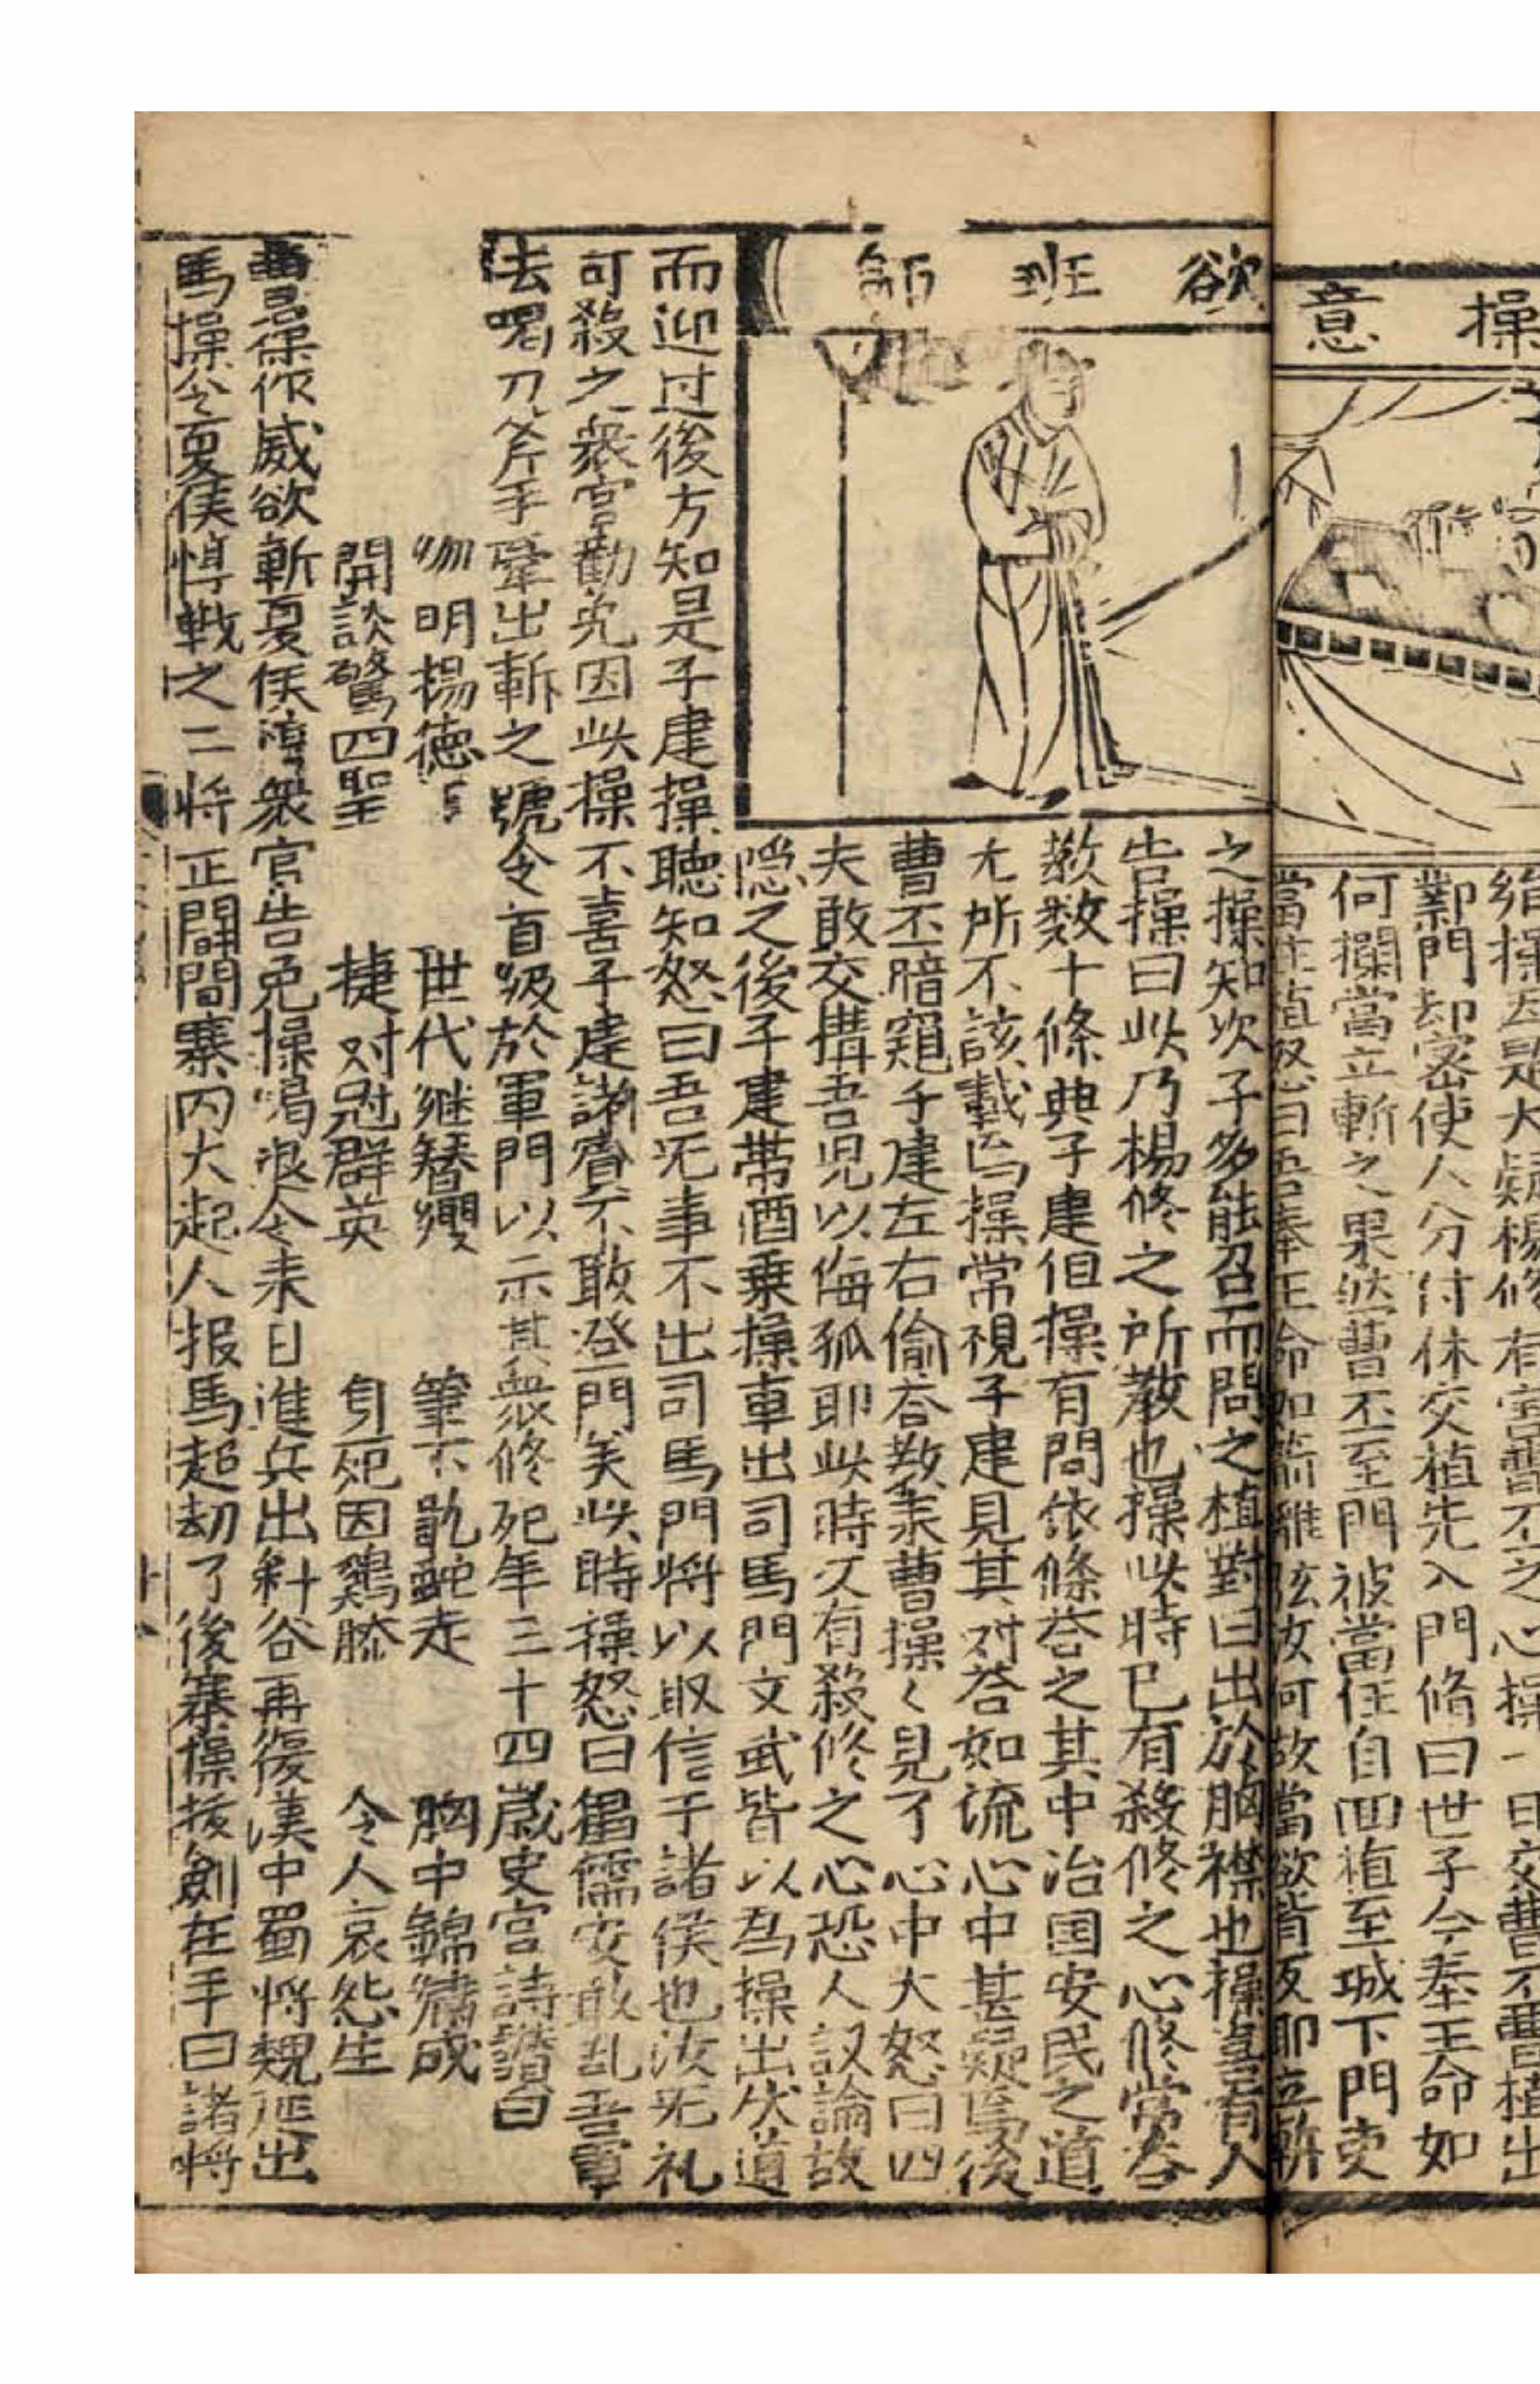 操意
紿操因是大疑楊修有害曹丕之心操一日交曹丕曹植出
鄴門却密使人分付休交植先入門脩曰世子今奉王命如
何攔當立斬之果然曹丕至門被當住自回植至城下門吏
當住植怒曰吾奉王命如箭離弦汝何故當欲背反耶立斬
欲班師
之操知次子多能召而問之植對曰出於胸襟也操喜有人
告操曰此乃楊修之所教也操此時已有殺修之心修常答
教数十條典子建但操有問依條荅之其中治国安民之道
尢所不該載焉操常視子建見其对荅如流心中甚疑焉後
曹丕暗窺子建左右偷荅教来曹操く見了心中大怒曰四
夫敢交搆吾児以侮孤耶此時又有殺修之心恐人議論故
隱之後子建帶酒乗操車出司馬門文武皆以為操出伏道
而迎过後方知是子建操聽知怒曰吾旡事不出司馬門将以取信于諸侯也汝旡礼
可殺之衆官勸免因此操不喜子建諸賓不敢登門矣此時操怒曰儒安敢乱吾軍
法喝刀斧手牽出斬之號令首級於軍門以示其衆修死年三十四歲史官詩讃曰
明揚德 世代継簪纓 筆下龍蛇走 胸中錦繡成
開談驚四聖 捷对冠群英 身死因鷄膝 令人哀怨生
曹操作威欲斬夏侯惇衆官告免操喝退令来日進兵出斜谷再復漢中蜀将魏延出
馬操令夏侯惇戰之二将正闘間寨内大起人报馬超劫了後寨操拔劍在手曰諸将